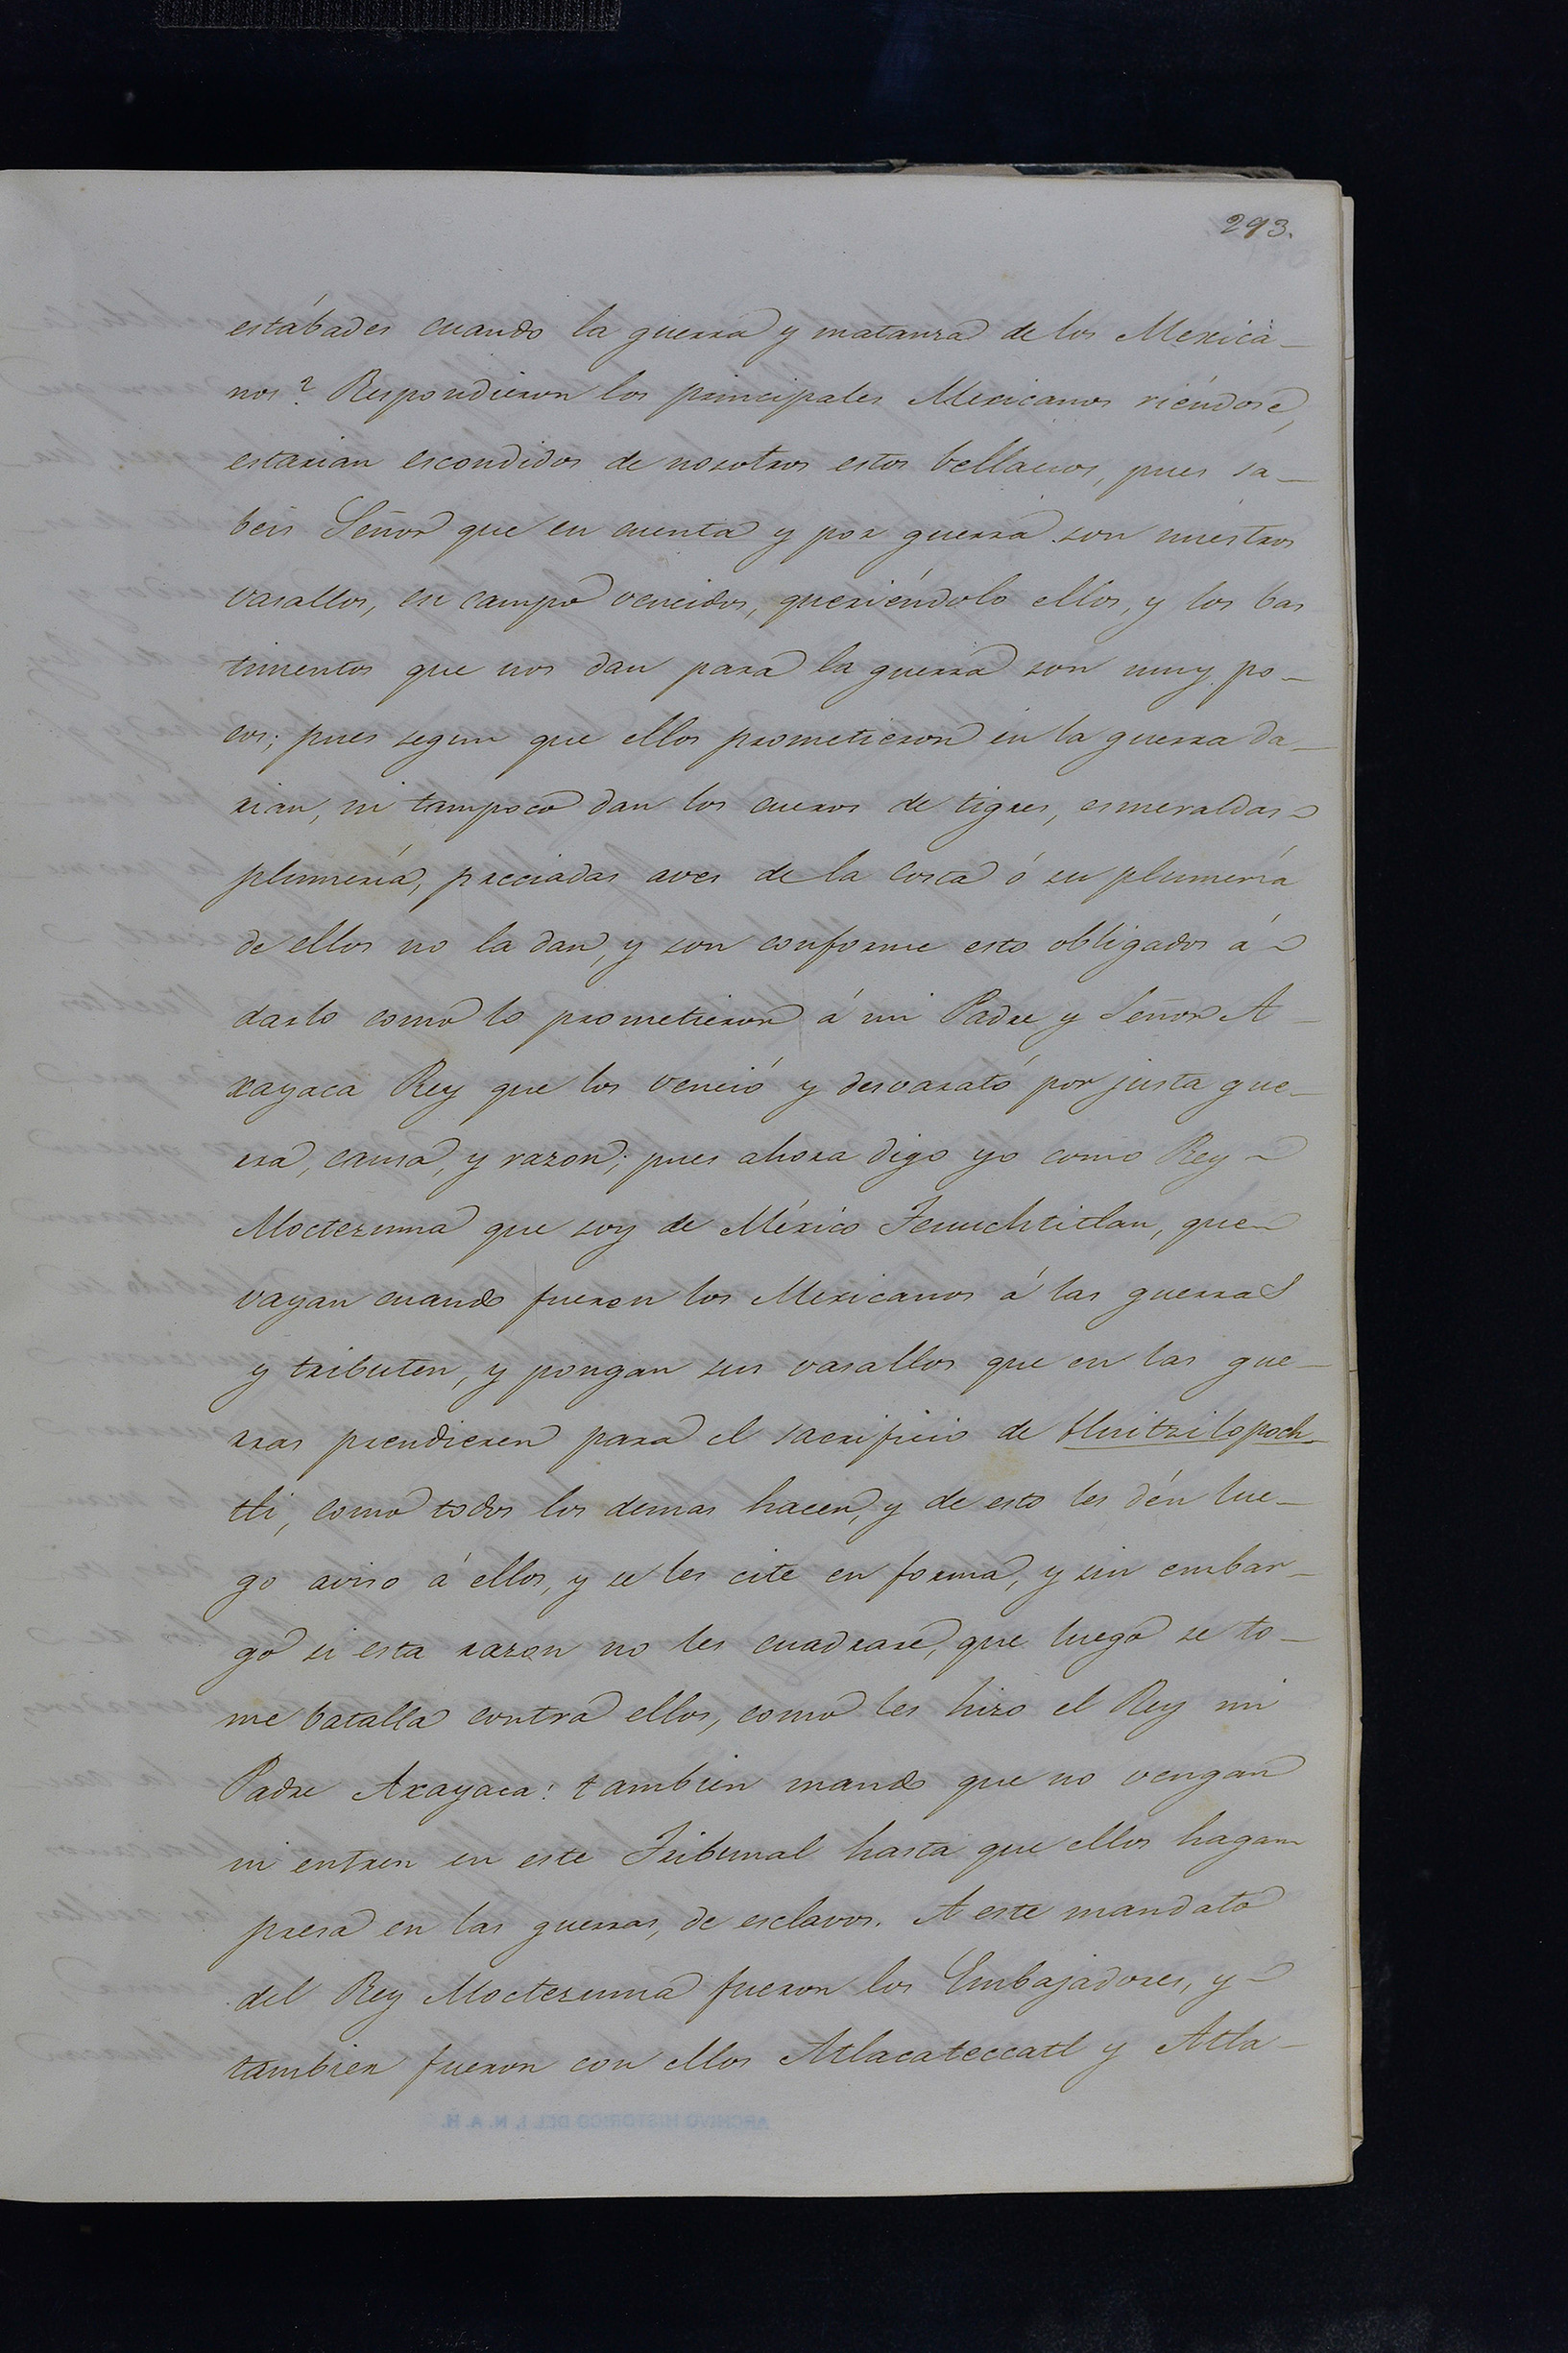 293.
estábades cuando la guerra y matanza de los Mexica-
nos? Respondieron los principales Mexicanos riéndose,
estarian escondidos de nosotros estos bellacos, pues sa-
beis Señor que en cuenta y por guerra son nuestros
vasallos, en campo vencidos, queriéndolo ellos, y los bas
timentos que nos dan para la guerra son muy po-
cos; pues segun que ellos prometieron en la guerra da-
rian, ni tampoco dan los cueros de tigres, esmeraldas
plumería, preciadas aves de la costa ó su plumería
de ellos no la dan, y son conforme esto obligados á
darlo como lo prometieron á mi Padre y Señor A-
xayaca Rey que los venció y desvarató por justa gue-
rra, causa, y razon; pues ahora digo yo como Rey
Moctezuma que soy de México Tenuchtitlan, que
vayan cuando fueren los Mexicanos á las guerras
y tributen, y pongan sus vasallos que en las gue-
rras prendieren para el sacrificio de Huitzilopoch-
tli, como todos los demas hacen, y de esto les dén lue-
go aviso á ellos, y se les cite en forma, y sin embar-
go si esta razon no les cuadrare, que luego se to-
me batalla contra ellos, como les hizo el Rey mi
Padre Axayaca: tambien mando que no vengan
ni entren en este Tribunal hasta que ellos hagan
presa en las guerras, de esclavos. A este mandato
del Rey Moctezuma fueron los Embajadores, y
tambien fueron con ellos Atlacateccatl y Atla-
ARCHIVO HISTORICO DEL I. N. A. H.